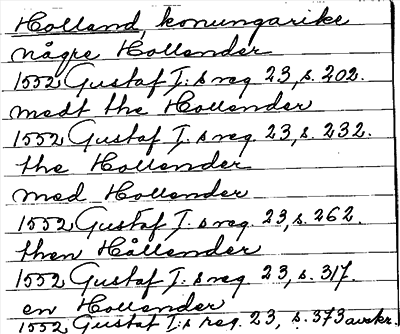 Holland, konungarike
någre Hollender
1552 Gustaf I:s reg. 23, s. 202.
medt the Hollender
1552 Gustaf I:s reg. 23, s. 232.
the Hollender
med Hollender
1552 Gustaf I:s reg. 23, s. 262.
then Hållender
1552 Gustaf I:s reg. 23, s. 317.
en Hollender
1552 Gustaf I:s reg. 23, s. 373 avskr.